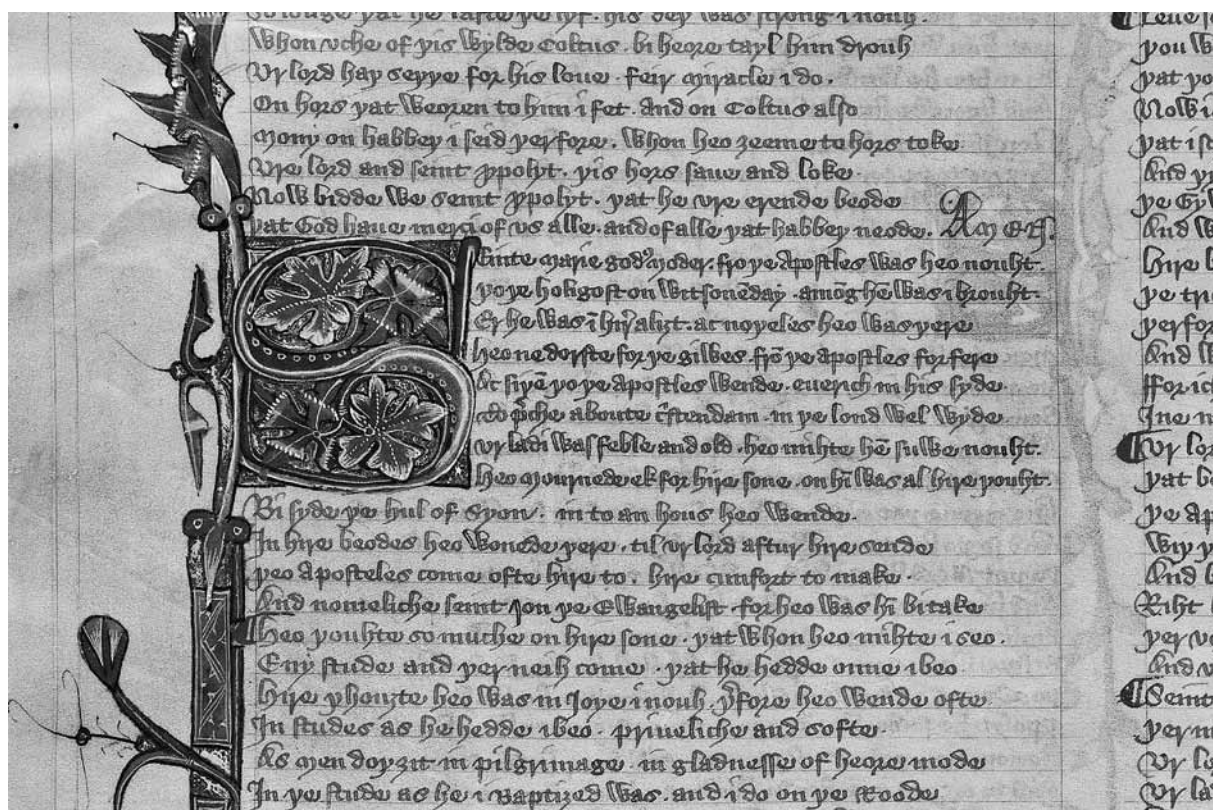 So longe þat he laste þe lyf. his dey was strong inouh.
Whon vche of þis wylde Coltus. bi heore tayl him drouh
Vr lord haþ seþþe for his loue. feir miracle i do.
On hors þat weoren to him i fet. And on Coltus also
Mony on habbeþ i seid þerfore. Whon heo ȝeeme to hors toke
Vre lord and seint ypolyt. þis hors saue and loke.
Now bidde we seint ypolyt. þat he vre erende beode
þat God haue merci of vs alle. and of alle þat habbeþ neode. AMEN.
Seinte Marie godꝰ moder. fro þe Apostles was heo nouht.
þo þe holigost on witsonēday. amōg hē was i brouht.
Er he was ī hir̛ aliȝt. ac noþeles heo was þere
heo ne dorste for þe giwes. frō þe apostles for fere
Ac siþē þo þe Apostles wende. euerich in his syde
to p̛che aboute c̛stendam. in þe lond wel wyde
vr ladi was feble and old. heo mihte hē suwe nouht.
heo mournede ek for hire sone. on hī was al hire þouht.
Bi syde þe hul of Syon. in to an hous heo wende.
In hire beodes heo wonede þere. til vr lord aftur hire sende
þeo Aposteles come ofte hire to. hire cunfort to make.
And nomeliche seint Jon þe Ewangelist. for heo was hī bitake
heo þouhte so muche on hire sone. þat whon heo mihte i seo.
Eny stude and þer neih come. þat he hedde onne ibeo
hire þhouȝte heo was in Joye inouh. þ̛fore heo wende ofte
In studes as he hedde ibeo. priueliche and softe.
As men doþ ȝit in pilgrimage. in gladnesse of heore mode
In þe stude as he i Baptized was. and i do on þe Roode
þou
þat
Now
þat
And
þe
And
hire
þe
And
Ffor
Ine
Vr
þat
þe
Wiþ
And
Riht
And
Seint
Vr
Vr